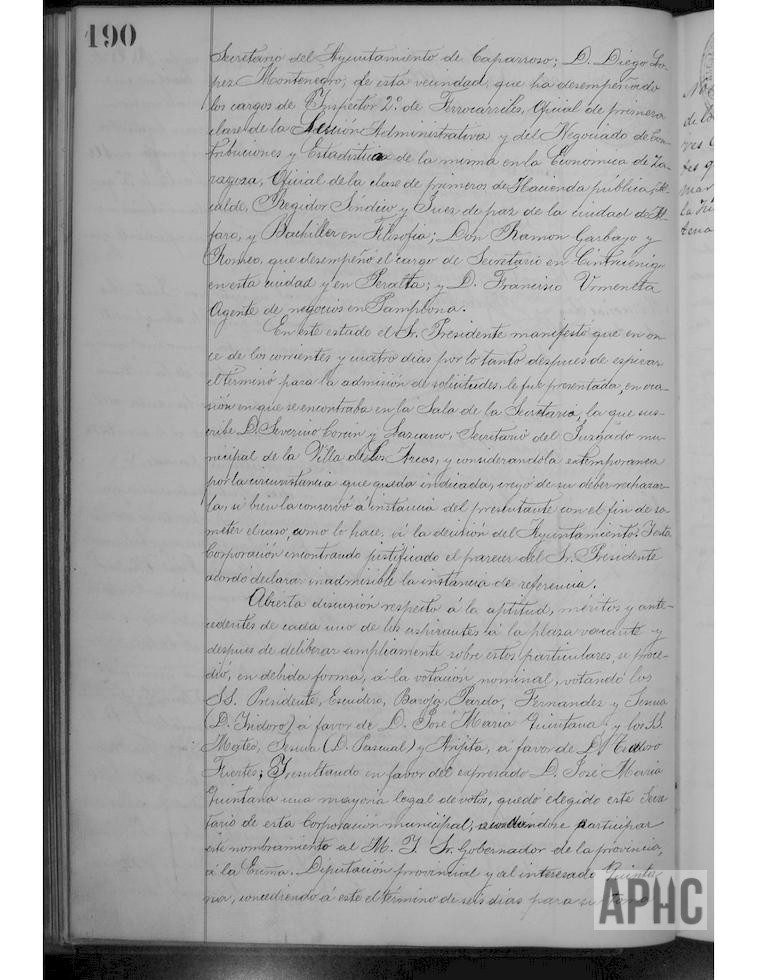 190
Secretario del Ayuntamiento de Caparroso; D. Diego Lo-
pez Montenegro, de esta vecindad, que ha desempeñado
los cargos de Inspector 2º de Ferrocarriles, Oficial de primera
clase de la Sección Administrativa y del Negociado de Con-
tribuciones y Estadistica de la misma en la Economica de Za-
ragoza, Oficial de la clase de primeros de Hacienda publica, Al-
calde, Regidor Sindico y Juez de paz de la ciudad de Al-
faro, y Bachiller en Filosofia; Don Ramon Garbayo y
Romeo, que desempeñó el cargo de Secretario en Cintruenigo
en esta ciudad y en Peralta; y D. Francisco Urmeneta
Agente de negocios en Pamplona.
En este estado el Sr. Presidente manifestó que en on-
ce de los corrientes y cuatro dias por lo tanto despues de espirar
el terminó para la admisión de solicitudes, le fué presentada, en oca-
sión en que se encontraba en la Sala de la Secretaria, la que sus-
cribe D. Severino Corcin y Lazcano, Secretario del Juzgado mu-
nicipal de la Villa de Los Arcos, y considerandola extemporanea
por la circunstancia que queda indicada, creyó de su deber rechazar-
la, si bien la conservó á instancia del presentante con el fin de so-
meter el caso, como lo hace, á la decisión del Ayuntamiento. Y esta
Corporación encontrando justificado el parecer del Sr. Presidente
acordó declarar inadmisible la instancia de referencia.
Abierta discusión respecto á la aptitud, méritos y ante-
cedentes de cada uno de los aspirantes á la plaza vacante y
despues de deliberar ampliamente sobre estos particulares, se proce-
dió, en debida forma, á la votación nominal, votando los
SS. Presidente, Escudero, Baroja, Pardo, Fernandez y
(D. Isidoro) á favor de D. José Maria Quintana y los SS.
Mateo, (D. Pascual) y á favor de D.
Fuertes; Y resultando en favor del expresado D. José Maria
Quintana una mayoria legal de votos, quedó elegido este Secre-
tario de esta Corporación municipal, acordandose participar
este nombramiento al M. Y. Sr. Gobernador de la provincia,
á la Excma. Diputación provincial y al interesado Quinta
na, concediendo á este el término de seis dias para su toma
APHC